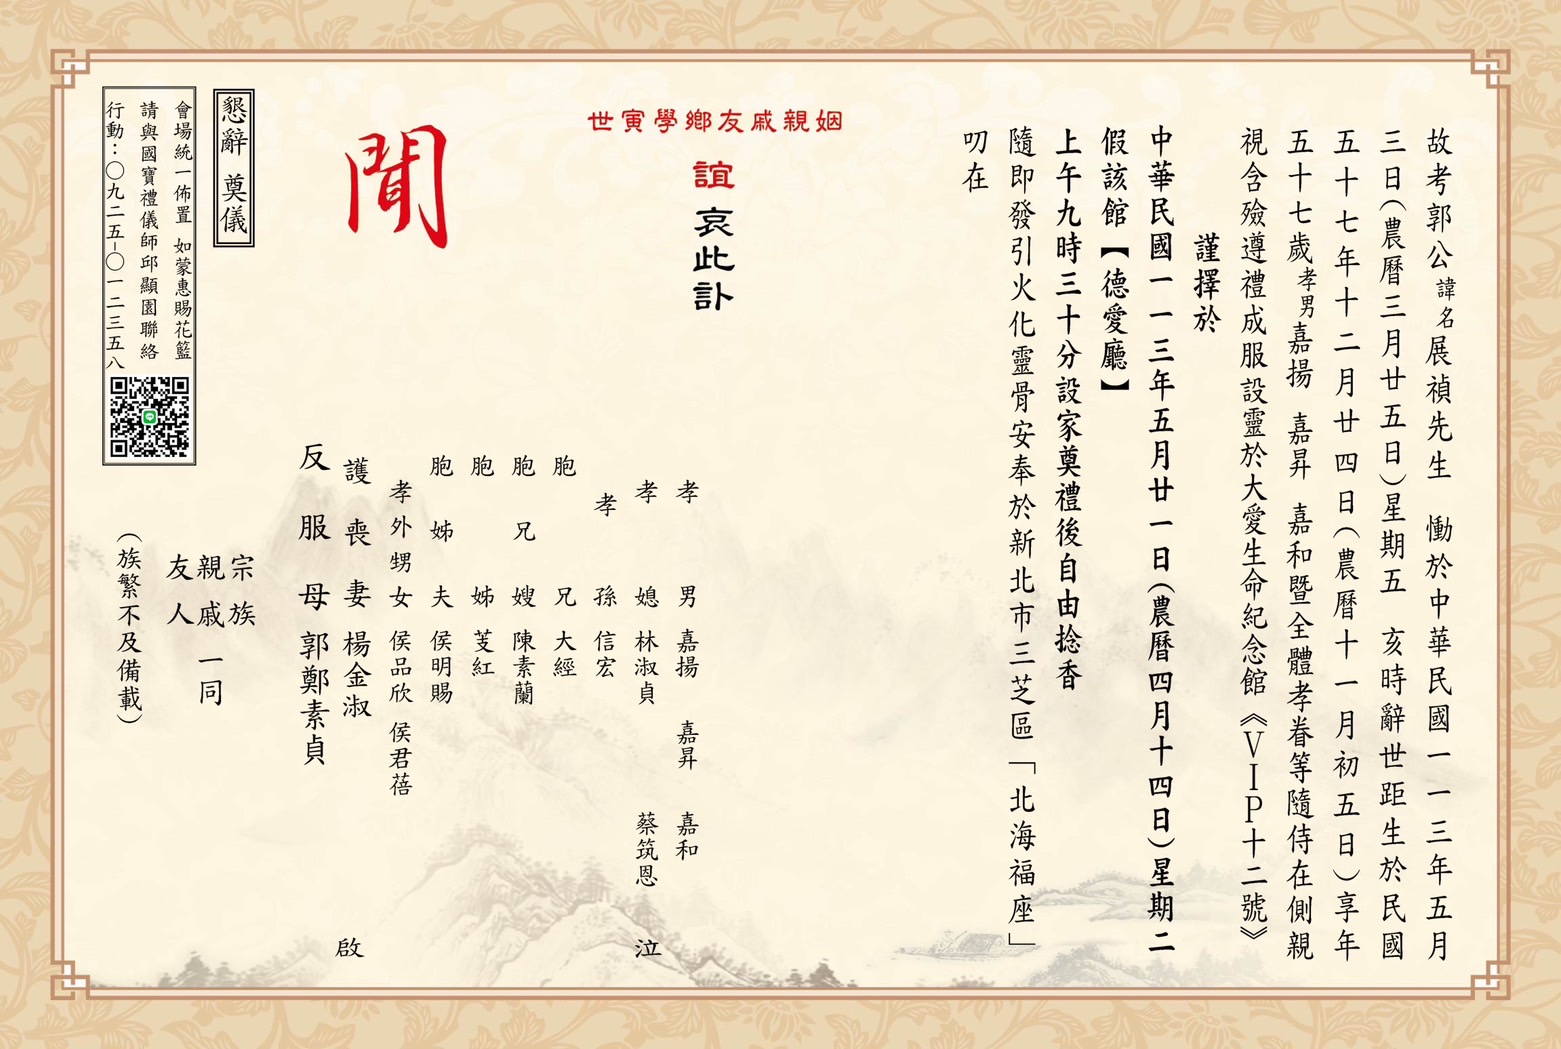 故考郭公諱名展禎先生　慟於中華民國一一三年五月
三日(農曆三月廿五日)星期五　亥時辭世距生於民國
五十七年十二月廿四日(農曆十一月初五日)享年
五十七歲孝男嘉揚　嘉昇　嘉和暨全體孝眷等隨侍在側親
視含殮遵禮成服設靈於大愛生命紀念館《VIP十二號》
謹擇於
中華民國一一三年五月廿一日(農曆四月十四日)星期二
假該館【德愛廳】
上午九時三十分設家奠禮後自由捻香
隨即發引火化靈骨安奉於新北市三芝區「北海福座」
叨在
姻親戚友鄉學寅世
誼哀此訃
聞
孝男　嘉揚　嘉昇　嘉和
孝媳　林淑貞　蔡筑恩　泣
孝孫　信宏
胞兄　大經
胞兄嫂　陳素蘭
胞姊　芰紅
胞姊夫　侯明賜
孝外甥女　侯品欣　侯君蓓
護喪妻　楊金淑　啟
反服母　郭鄭素貞
宗族
親戚一同
友人
(族繁不及備載)
懇辭　奠儀
會場統一佈置　如蒙惠賜花籃
請與國寶禮儀師邱顯園聯絡
行動：〇九二五-〇一二三五八